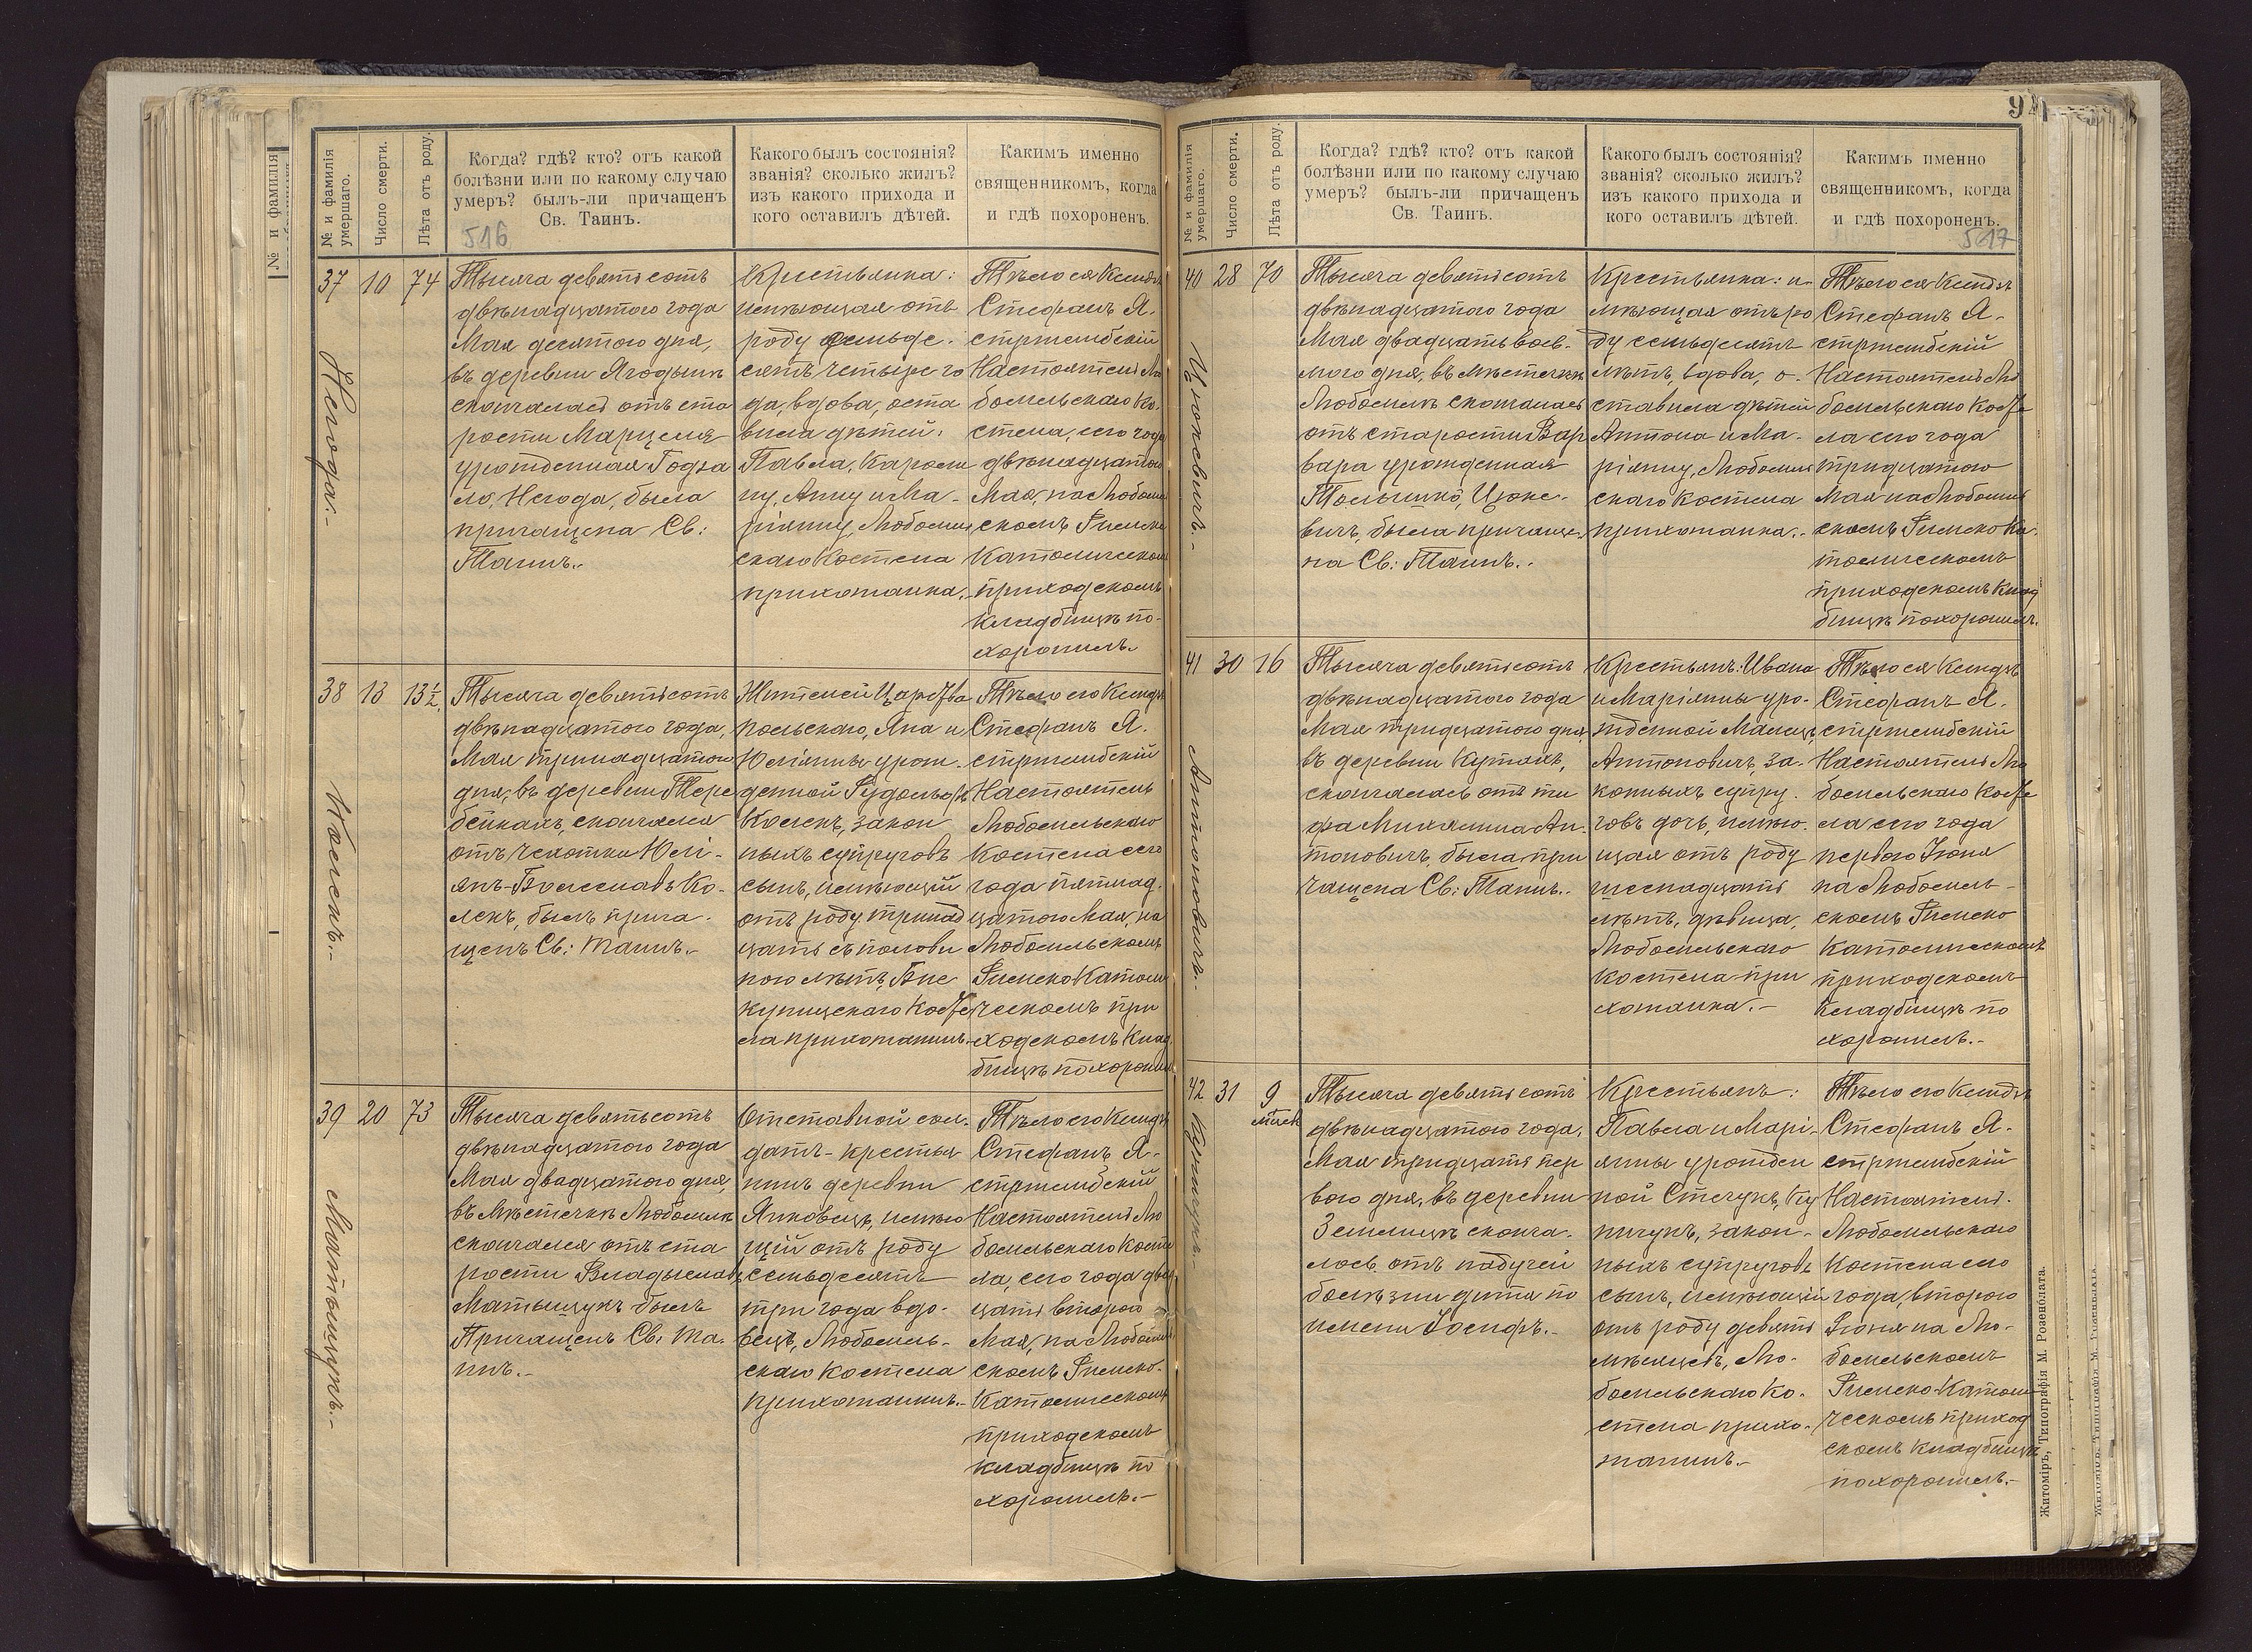 № и фамилія
№ и фамилія умершаго.
Число смерти.
Лѣта отъ роду.
Когда? гдѣ? кто? отъ какой
болѣзни или по какому случаю
умеръ? былъ-ли причащенъ
Св. Таинъ.
516
Какого былъ состоянія?
званія? сколько жилъ?
изъ какого прихода и
кого оставилъ дѣтей.
Каким именно
священникомъ, когда
и гдѣ похороненъ.
37 10 74
Негода.-
Тысяча девятьсотъ
двѣнадцатого года
Мая десятого дня,
въ деревни Ягодынѣ
скончалась отъ ста
рости Марцеля
урожденная Годза
ло, Негода, была
причащена Св:
Таинъ.-
Крестьянка:
имѣющая отъ
роду семьде-
сятъ четыре го
да, вдова, оста
вила дѣтей:
Павла, Кароли
ну, Анну и Ма-
ріянну, Любомль
скаго Костела
прихожанка.-
Тѣло ея Ксендзъ
Стефанъ Я-
стржембскій
Настоятель Лю
бомльскаго Ко-
стела, сего года
двѣнадцатого
Мая, на Любомль
скомъ Римско
Католическомъ
приходскомъ
кладбищѣ по-
хоронилъ.
38 13 13½
Колекъ.-
Тысяча девятьсотъ
двѣнадцатого года,
Мая тринадцатого
дня, въ деревни Тере
бейкахъ, скончался
отъ чахотки Юлі-
янъ-Болеславъ Ко-
лекъ, былъ прича-
щенъ Св: Таинъ.-
Жителей Царства
Польскаго, Яна и
Юліянны урож-
денной Рудольфъ
Колекъ, закон
ныхъ супруговъ
сынъ, имѣющій
отъ роду тринад
цать съ полови
ною лѣтъ, Бис
купицскаго Косте
ла прихожанинъ.
Тѣло его Ксендзъ
Стефанъ Я-
стржембскій
Настоятель
Любомльскаго
Костела сего
года пятнад-
цатого Мая, на
Любомльскомъ
Римско Католи
ческомъ при
ходскомъ клад
бищѣ похоронилъ
39 20 73
Матыщукъ.-
Тысяча девятьсотъ
двѣнадцатого года
Мая двадцатого дня,
въ Мѣстечкѣ Любомлѣ
скончался отъ ста
рости Владыславъ
Матыщукъ былъ
Причащенъ Св: Та-
инъ.-
Отставной сол-
датъ - крестья
нинъ деревни
Янковецъ, имѣю
щій отъ роду
семьдесятъ
три года вдо-
вецъ, Любомль-
скаго костела
прихожанинъ.-
Тѣло его Ксендзъ
Стефанъ Я-
стржембскій
Настоятель Лю
бомльскаго Косте
ла, сего года двад
цать второго
Мая, на Любомль
скомъ Римско-
Католическомъ
приходскомъ
кладбищѣ по
хоронилъ.-
94
№ и фамилія умершаго.
Число смерти.
Лѣта отъ роду.
Когда? гдѣ? кто? отъ какой
болѣзни или по какому случаю
умеръ? былъ-ли причащенъ
Св. Таинъ.
Какого былъ состоянія?
званія? сколько жилъ?
изъ какого прихода и
кого оставилъ дѣтей.
Каким именно
священникомъ, когда
и гдѣ похороненъ.
517
40 28 70
Цюкевичъ.-
Тысяча девятьсотъ
двѣнадцатого года
Мая двадцать вось-
мого дня, въ Мѣстечкѣ
Любомлѣ скончалась
отъ старости Вар
вара урожденная
Цюке-
вичъ, была причаще-
на Св: Таинъ.-
Крестьянка: и-
мѣющая отъ ро
ду семьдесятъ
лѣтъ, вдова, о-
ставила дѣтей
Антона и Ма-
ріянну, Любомль
скаго костела
прихожанка.-
Тѣло ея Ксендзъ
Стефанъ Я-
стржембскій
Настоятель Лю
бомльскаго Косте
ла сего года
тридцатого
Мая на Любомль
скомъ Римско Ка-
толическомъ
приходскомъ клад
бищѣ похоронилъ.
41 30 16
Антоновичъ.-
Тысяча девятьсотъ
двѣнадцатого года
Мая тридцатого дня,
въ деревни Кутахъ,
скончалась отъ ти
фа Михалина Ан-
тоновичъ, была при
чащена Св: Таинъ.-
Крестьянъ: Ивана
и Маріянны уро-
жденной
Антоновичъ, за-
конныхъ супру-
говъ дочь, имѣю-
щая отъ роду
шеснадцать
лѣтъ, дѣвица,
Любомльскаго
костела при
хожанка.-
Тѣло ея Ксендзъ
Стефанъ Я-
стржембскій
Настоятель Лю
бомльскаго Косте
ла сего года
перваго Іюня
на Любомль-
скомъ Римско
Католическомъ
приходскомъ
кладбищѣ по
хоронилъ.-
42 31 9
мѣсяц
Купичукъ.-
Тысяча девятьсотъ
двѣнадцатого года,
Мая тридцать пер
вого дня, въ деревни
Землицѣ сконча-
лось отъ падучей
болѣзни дитя по
имени Іосифъ.-
Крестьянъ:
Павла и Марі-
янны урожден
ной Стечукъ, Ку
пичукъ, закон-
ныхъ супруговъ
сынъ, имѣющій
отъ роду девять
мѣсяцевъ, Лю-
бомльскаго Ко-
стела прихо-
жанинъ.-
Тѣло его Ксендзъ
Стефанъ Я-
стржембскій
Настоятель
Любомльскаго
Костела сего
года, второго
Іюня на Лю-
бомльскомъ
Римско-Католи
ческомъ приход
скомъ кладбищѣ
похоронилъ.-
Житоміръ, Типографія М. Розенблата.